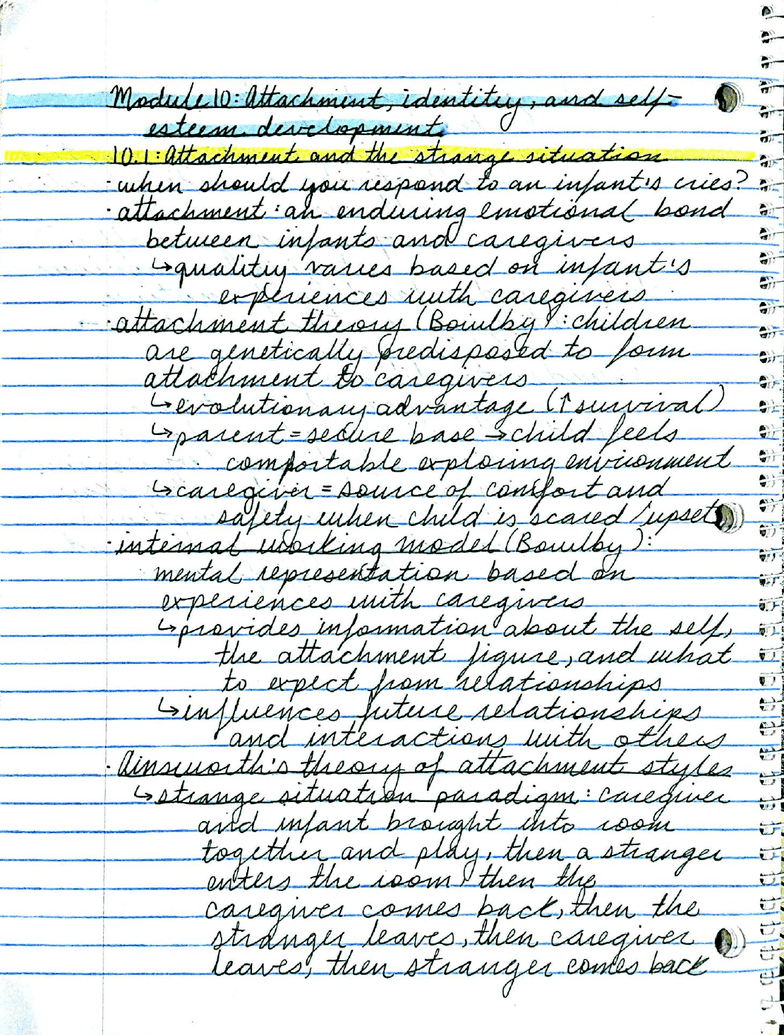 Module 10: Attachment, identity, and self-
esteem development
10.1: Attachment and the strange situation
·when should you respond to an infant's cries?
·attachment: an enduring emotional bond
between infants and caregivers
↳quality varies based on infant's
experiences with caregivers
·attachment theory (Bowlby): children
are genetically predisposed to form
attachment to caregivers
↳evolutionary advantage (↑survival)
↳parent=secure base→child feels
comfortable exploring environment
↳caregiver=source of comfort and
safety when child is scared/upset
·internal working model (Bowlby):
mental representation based on
experiences with caregivers
↳provides information about the self,
the attachment figure, and what
to expect from relationships
↳influences future relationships
and interactions with others
·Ainsworth's theory of attachment styles
↳strange situation paradigm: caregiver
and infant brought into room
together and play, then a stranger
enters the room, then the
caregiver comes back, then the
stranger leaves, then caregiver
leaves, then stranger comes back